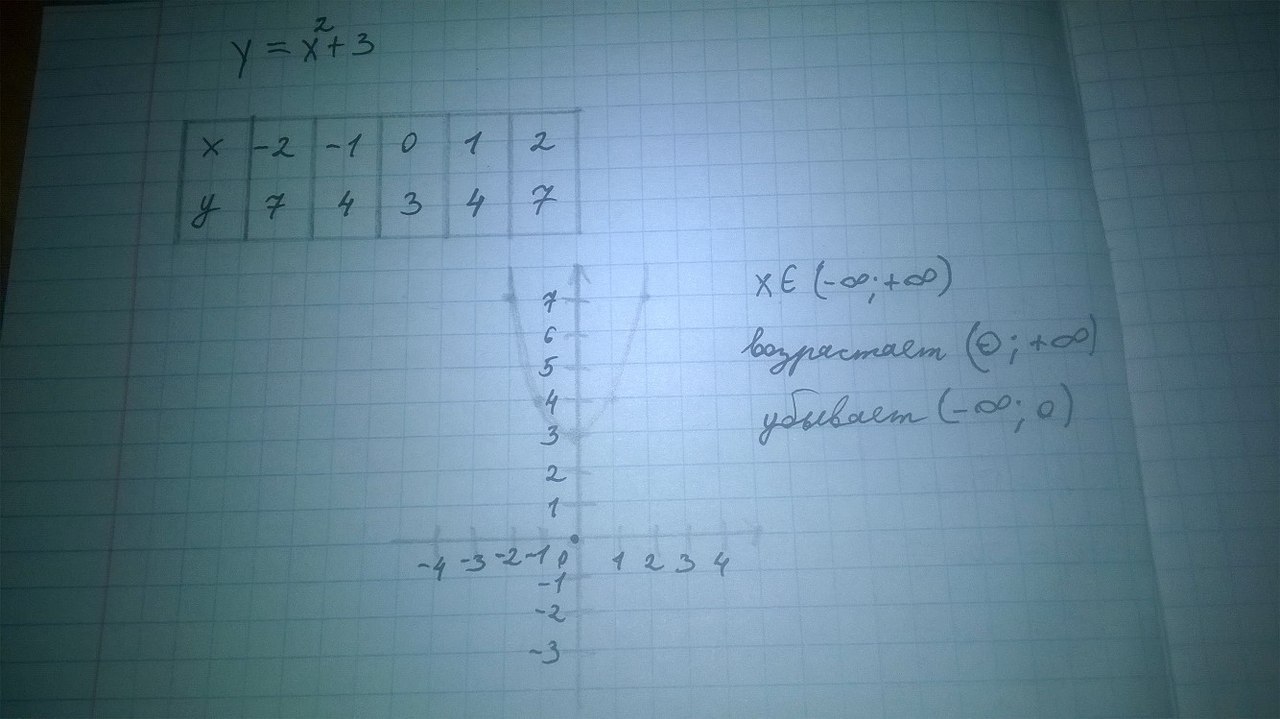 y = x² + 3
x -2 -1 0 1 2
y 7 4 3 4 7
x∈(-∞;+∞)
возрастает (0; +∞)
убывает (-∞; 0)
7
6
5
4
3
2
1
-4 -3 -2 -1 0 1 2 3 4
-1
-2
-3